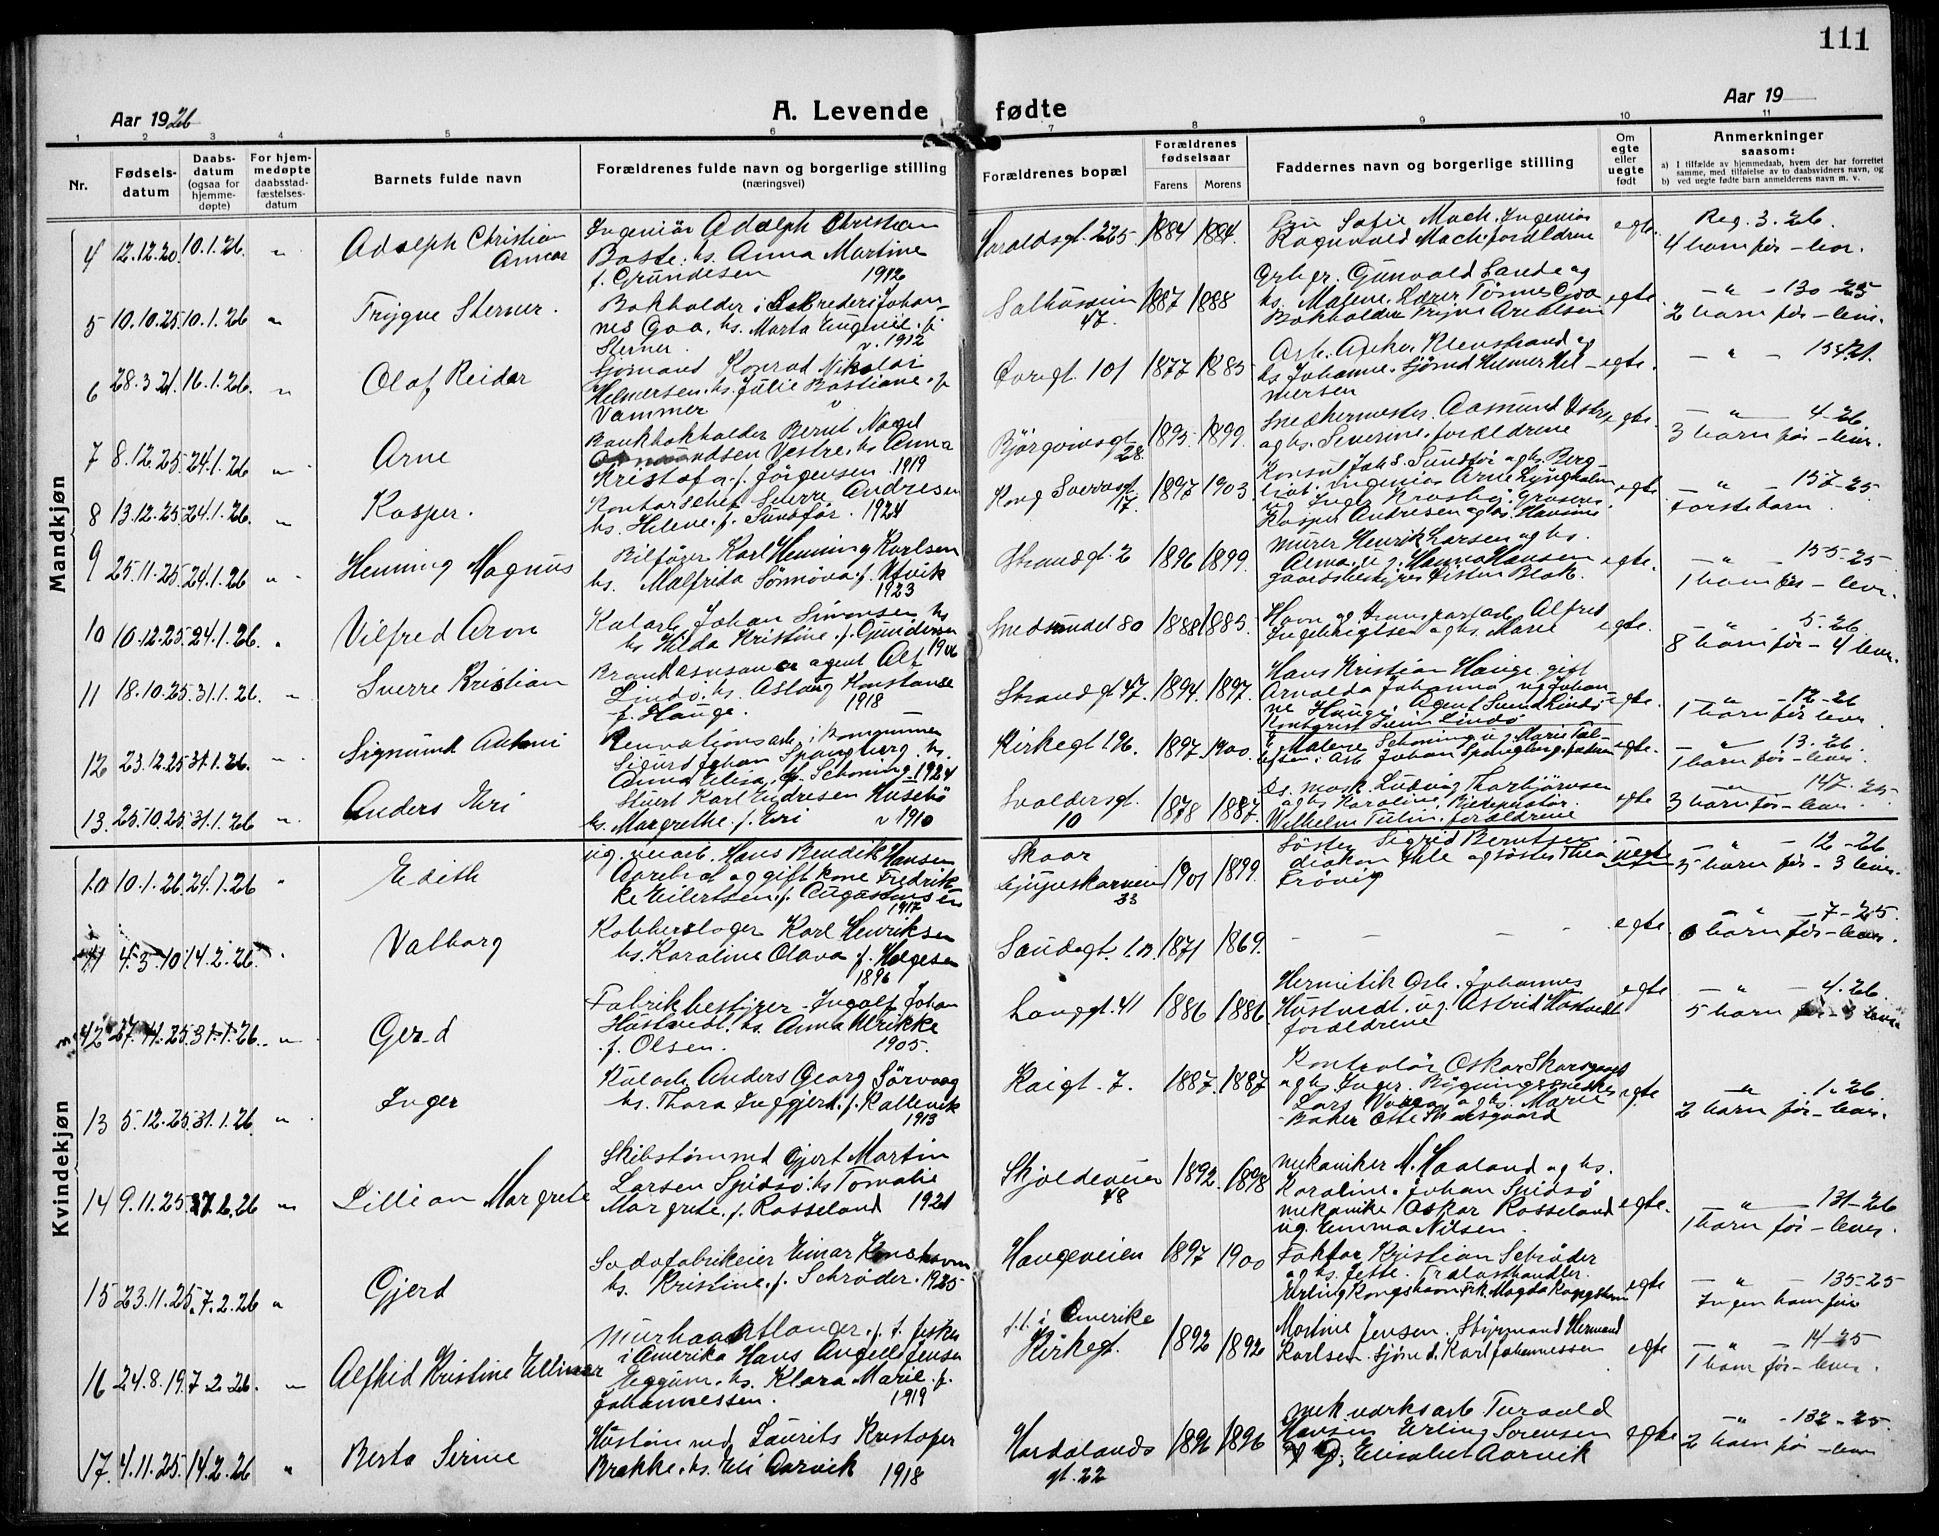 111
Aar 1926
A. Levende fødte
Aar 19
1 2 3 4 5 6 7 8 9 10 11
Nr.
Fødsels-datum
Daabs-datum (ogsaa for hjemme-døpte)
For hjem-medøpte daabsstad-fæstelses-datum
Barnets fulde navn
Forældrenes fulde navn og borgerlige stilling (næringsvei)
Forældrenes bopæl
Forældrenes fødselsaar
Farens Morens
Faddernes navn og borgerlige stilling
Om egte eller uegte født
Anmerkninger saasom:
a) I tilfælde av hjemmedaab, hvem der har forrettet samme, med tilføielse av to daabsvidners navn, og
b) ved uegte fødte barn anmelderens navn m. v.
Mandkjøn
4 12.12.20 10.1.26 " Adolph Christian
Ingeniør Adolph Christian
Baste. hs. Anna Martine
f. Grundesen 1912
Haraldsgt. 225 1884 1884
Sofie Mach. Ingeniør
Ragnvald Mach forældrene
egte. Reg. 3. 26.
4 barn før - lev.
5 10.10.25 10.1.26 " Trygve Sterner.
Bokholder i Johan-
nes Goa. hs. Marta f.
Sterner. v. 1912
Salhusveien 47. 1887 1888
Gunvald Lande og
hs. Malene. Lærer Tønnes Goa
Bokholder Trygve
egte - " - 130-25
2 barn før - lever.
6 28.3.21. 16.1.26. " Olaf Reidar
Sjømand Konrad Nikolai
Helmersen. hs. Julie Bastiane. f.
Vammer
101 1877 1885
Arb.
hs. Johanne. Sjømd Helmer Hel-
mersen
egte. - " -
7 8.12.25 24.1.26 " Arne
Bankbokholder Bernt Nagel
Vestre. hs. Anna
Kristofa f. Jørgensen. 1919
Bjørgvinsgt. 28. 1895. 1899.
Snedkermester. Aasmund
og hs. Severine. forældrene
egte. - " - 4-26.
3 barn før - lever.
8 13.12.25 24.1.26. " Kasper.
Kontorchef Sverre Andresen
hs. Helene. f. Sundfør. 1924
Kong Sverresgt. 17. 1897 1903
Konsul Joh S. Sundfør og hs. Berg-
liot. Ingeniør Arne Lyngholm
Kasper Andresen og hs.
egte. - " - 157-25
Første barn.
9 25.11.25. 24.1.26 " Henning Magnus
Bileier Karl Henning Karlsen
hs. Malfrida f. Utvik
1923
Strandgt. 2 1896 1899.
Murer Henrik Larsen og hs.
Anna. ug. Hanna Hansen
Gaardsbestyrer
egte. - " - 155-25
1 barn før - lever.
10 10.12.25 24.1.26. " Vilfred Aron
Kularb. Johan Simonsen hs
hs Hilda Kristine. f. Gundersen
1906
80 1888 1885.
Havn og transportarb. Alfred
Ingebrigtsen og hs. Marie
egte. - " - 5-26.
8 barn før - 4 lever.
11 18.10.25 31.1.26. " Sverre Kristian
agent Alf
Lindø. hs. Aslaug Konstanse
f. Hauge. 1918
Strandgt. 47. 1894. 1897.
Hans Kristian Hauge. gift
Arnolda Johanna, ug Johan-
ne Hauge. Agent Svend Lindø
egte. - " - 12-26
1 barn før lever.
12 23.12.25 31.1.26. " Sigmund Antoni
Renovationsarb. i kommunen
Sigurd Johan Spangberg. hs.
Anna Elisa. f. Schøning. 1924
Kirkegt 196. 1897. 1900.
Malene Schøning. ug. Marie
Arb Johan Spangberg. faren
egte. - " - 13. 26.
1 barn før - lever.
13. 25.10.25. 31.1.26 " Anders Eri
Stuert Karl Endresen Husebø
hs. Margrethe f. Eri v 1910
Svoldersgt. 10 1878 1887.
Ds. mask. Ludvig Thorbjørnsen
og hs Karoline.
Wilhelm Tulin. forældrene
egte - " - 147-25.
3 barn før - lever.
Kvindekjøn
10 10.1.26 24.1.26 " Edith
ug. Hans Bendik Hansen
og gift kone Fredrik-
ke Eilertsen. f. Augustinussen
1917
Skaar
33 1901 1899.
Søster Sigrid Berntsen
diakon og søster Thea
Frøvig
uegte - " - 12-26
5 barn før - 3 lever.
11 4.3.10 14.2.26. " Valborg
Kobberslager Karl Henriksen
hs. Karoline Olava f. Helgesen
1896
1871 1869.
- - - - -
egte. - " - 7-25.
6 barn før - lever.
12 27.11.25 31.1.26. " Gerd
Fabrikbestyrer. Ingolf Johan
Hustvedt. hs. Anna Ulrikke
f. Olsen. 1905.
Langgt. 41 1886 1886
Hermetik Arb. Johannes
Hustvedt. ug. Astrid Hustvedt
forældrene
egte - " - 4.26.
5 barn før - 3 lever
13 5.12.25. 31.1.26. " Inger
Kularb. Anders Georg Sørvaag
hs. Thora Inggjerd. f. Kallevik
1913
Kaigt. 7. 1887. 1887
Kontrolør Oskar Skarsgaard
og hs Inger. Bygningssnedker
Lars og hs. Marie
Baker Otto Skarsgaard
egte. " 1.26.
2 barn før - lever.
14 9.11.25 7.2.26 " Lillian Margrete
Skibstømmd Gjert Martin
Larsen Spidsø. hs Tomalie
Margrete. f. Rosseland 1921
Skjoldeveien 48 1892. 1898
Mekaniker M. Haaland og hs.
Karoline. Johan Spidsø
mekanike Oskar Rosseland
ug. Emma Nilsen.
egte. - " - 131-26
1 barn før - lever.
15 23.11.25. 7.2.26 " Gjerd
Sodafabrikeier Einar Kongshavn
hs. Kristine. f. Schrøder. 1925
Haugeveien 1897 1900
Faktor Kristian Schrøder
og hs. Jette. Trælasthandler.
Erling Kongshavn. Frk. Magda Kongshavn
egte - " - 135-25
Ingen barn før
16 24.8.19. 7.2.26. " Alfhild Kristine Ellinor
Murhaandtlanger. f. t. fisker
i Amerika Hans Angell Jensen
Eggum. hs. Klara Marie. f.
Johannessen. 1919
f.t. i Amerika
Kirkegt. 1892 1892
Martine Jensen. Styrmand Herman
Karlsen. Sjømd. Karl Johannessen
egte - " - 14-25
1 barn før - lever.
17. 4.11.25. 14.2.26 " Berta Serine
Hustømmd Laurits Kristofer
Brekke. hs. Eli Aarvik 1918
Hordalands gt. 22 1896 1896
Mek verksarb Torvald
Hansen Erling Sørensen
ug. Elisabet Aarvik
egte - " - 132-25.
2 barn før - lever